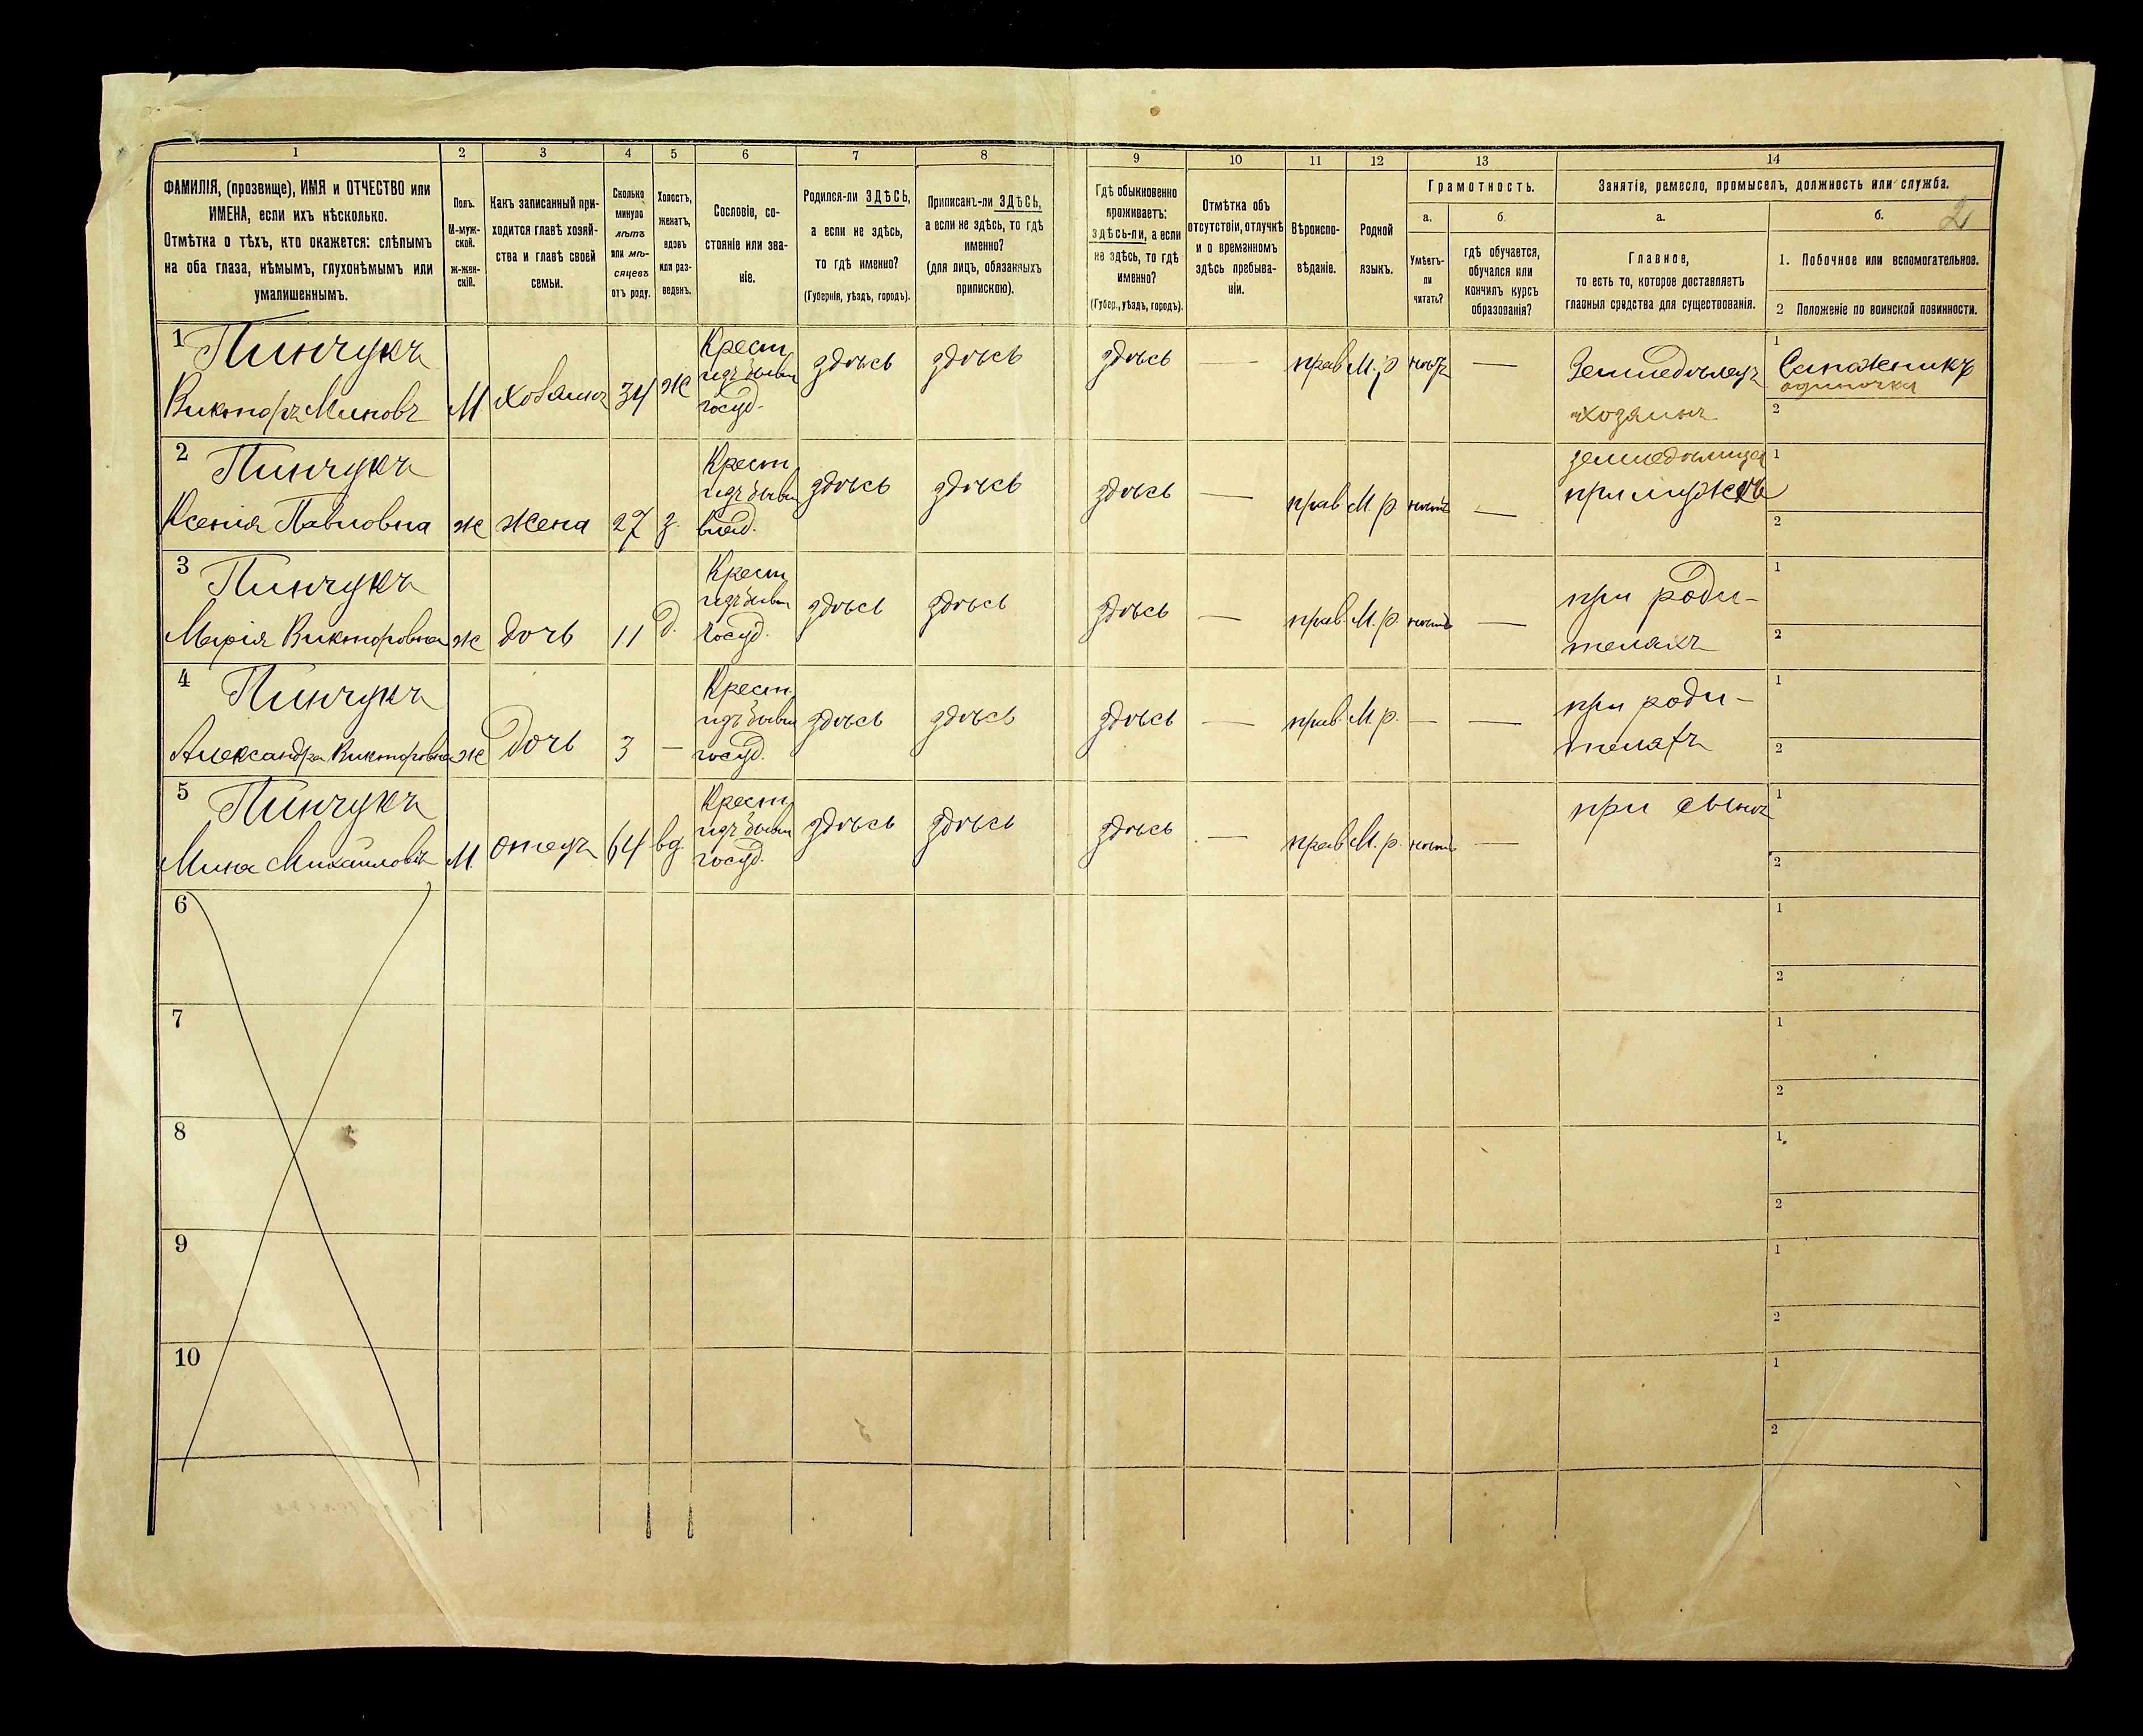 1 2 3 4 5 6 7 8 9 10 11 12 13 14
ФАМИЛІЯ, (прозвище), ИМЯ и ОТЧЕСТВО или
ИМЕНА, если ихъ нѣсколько.
Отмѣтка о тѣхъ, кто окажется: слѣпымъ
на оба глаза, нѣмымъ, глухонѣмымъ или
умалишеннымъ.
Полъ.
М-муж-
ской.
ж-жен-
скій.
Какъ записанный при-
ходится главѣ хозяй-
ства и главѣ своей
семьи.
Сколько
минуло
лѣтъ
или мѣ-
сяцевъ
отъ роду.
Холостъ,
женатъ,
вдовъ
или раз-
веденъ.
Сословіе, со-
стояніе или зва-
ніе.
Родился-ли ЗДѢСЬ,
а если не здѣсь,
то гдѣ именно?
(Губернія, уѣздъ, городъ).
Приписанъ-ли ЗДѢСЬ,
а если не здѣсь, то гдѣ
именно?
(для лицъ, обязанныхъ
припискою).
Гдѣ обыкновенно
проживаетъ:
здѣсь-ли, а если
не здѣсь, то гдѣ
именно?
(Губер., уѣздъ, городъ).
Отмѣтка объ
отсутствіи, отлучкѣ
и о временномъ
здѣсь пребыва-
ніи.
Вѣроиспо-
вѣданіе.
Родной
языкъ.
Грамотность.
а.
Умѣетъ-
ли
читать?
б.
гдѣ обучается,
обучался или
кончилъ курсъ
образованія?
Занятіе, ремесло, промыселъ, должность или служба.
а.
Главное,
то есть то, которое доставляетъ
главныя средства для существованія.
б. 2
1. Побочное или вспомогательное.
2 Положеніе по воинской повинности.
1 Пинчукъ
Викторъ Миновъ
М
хозяинъ
34
ж
Крест
изъ бывш
госуд.
здѣсь
здѣсь
здѣсь
—
прав
М. р
нѣтъ
—
Земледѣлецъ
хозяинъ
1 Сапожникъ
одиночка
2
2 Пинчукъ
Ксенія Павловна
ж
жена
27
з.
Крест
изъ бывш
влад.
здѣсь
здѣсь
здѣсь
—
прав
М. р.
нѣтъ
—
земледѣлица
при мужѣ
1
2
3 Пинчукъ
Марія Викторовна
ж
дочь
11
д.
Крест
изъ бывш
госуд.
здѣсь
здѣсь
здѣсь
—
прав.
М. р.
нѣтъ
—
при роди-
теляхъ
1
2
4 Пинчукъ
Александра Викторовна
ж
дочь
3
—
Крест.
изъ бывш
госуд.
здѣсь
здѣсь
здѣсь
—
прав.
М. р.
—
—
при роди-
теляхъ
1
2
5 Пинчукъ
Мина Михайловъ
М.
отецъ
64
вд.
Крест
изъ бывш
госуд.
здѣсь
здѣсь
здѣсь
—
прав
М. р.
нѣтъ
—
при сынѣ
1
2
6
1
2
7
1
2
8
1
2
9
1
2
10
1
2